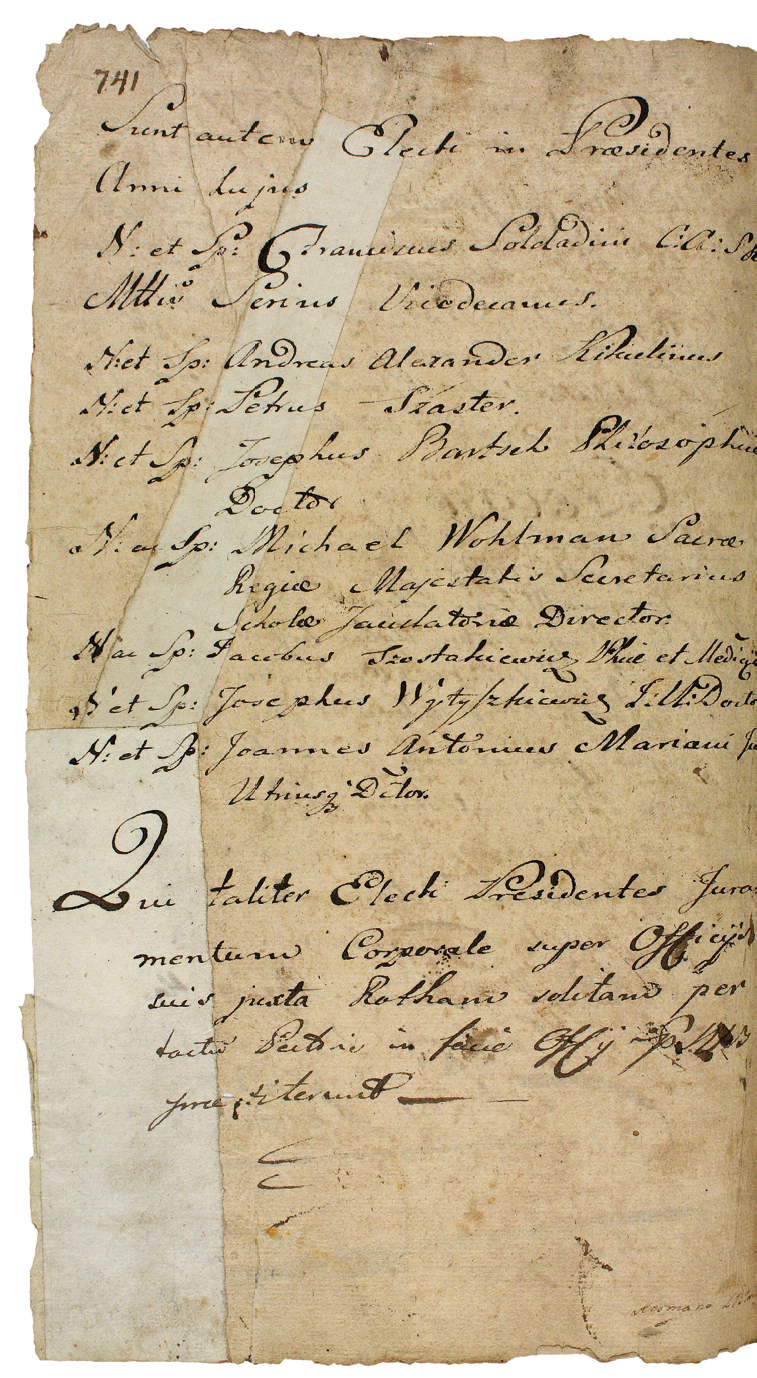 741
Sunt autem Electi in Præsidentes
Anni hujus
N: et Sp: Franciscus Soldadini C: A: S R
Mttis Serius Vicedecanus.
N: et Sp: Andreas Alexander Kikulinus
N: et Sp: Petrus Szaster.
N: et Sp: Josephus Bartsch Philosophiæ
Doctor
N: ac Sp: Michael Wohlman Sacræ
Regiæ Majestatis Secretarius
Scholæ Jaculatoriæ Director.
N ac Sp: Jacobus Szostakiewicz Phiæ et Medicj
N et Sp: Josephus Wytyszkiewicz J: U: Doctor
N: et Sp: Joannes Antonius Mariani Ju
Utriusq Dctor.
Qui taliter Electi Præsidentes Jura
mentum Corporale super Officijs
suis juxta Rotham solitam per
tactu Pectoris in facie Offij
præstiterunt